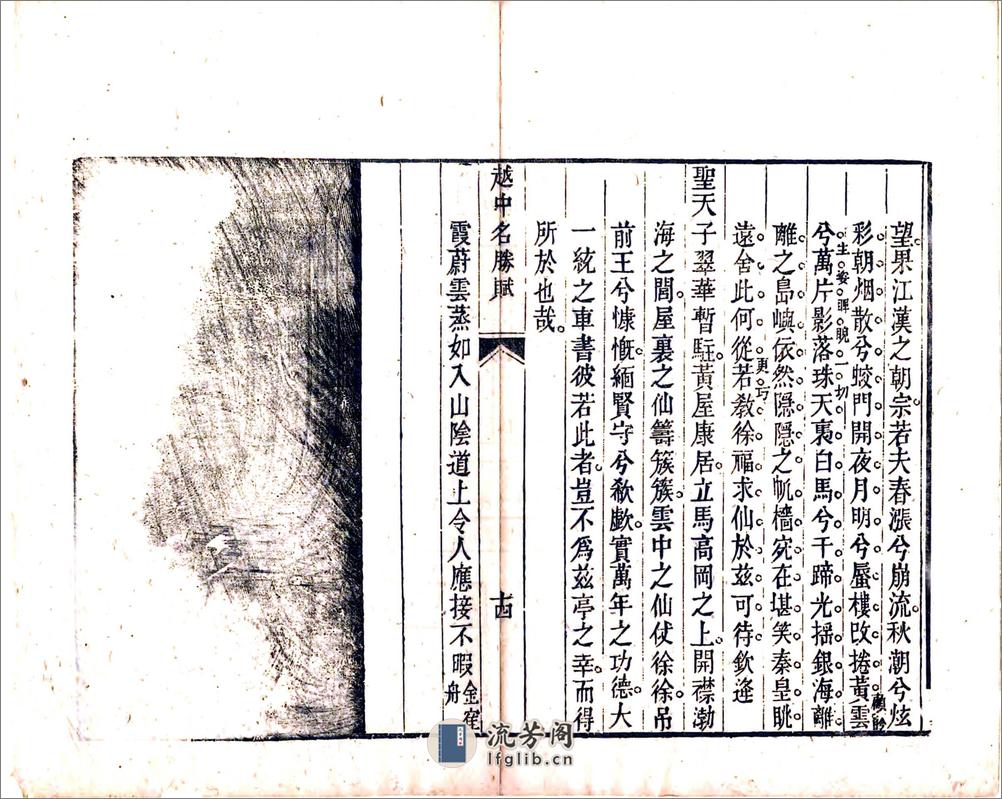 望果江漢之朝宗若夫春漲兮崩流秋潮兮炫
彩朝烟散兮蛟門開夜月明兮蜃樓改捲黃雲
顧盼
生姿睥睨一切
兮萬片影落珠天裏白馬兮千蹄光揺銀海離
離之島嶼依然隱隱之帆檣宛在堪笑秦皇眺
更巧
遠舍此何從若敎徐福求仙於兹可待欽逢
聖天子翠華暫駐黃屋康居立馬高岡之上開襟渤
海之間屋裏之仙籌簇簇雲中之仙仗徐徐吊
前王兮慷慨緬賢守兮欷歔實萬年之功德大
一統之車書彼若此者豈不爲兹亭之幸而得
所於也哉
越中名勝賦 十四
霞蔚雲蒸如入山陰道上令人應接不暇金寉舟
流芳阁
lfglib.cn